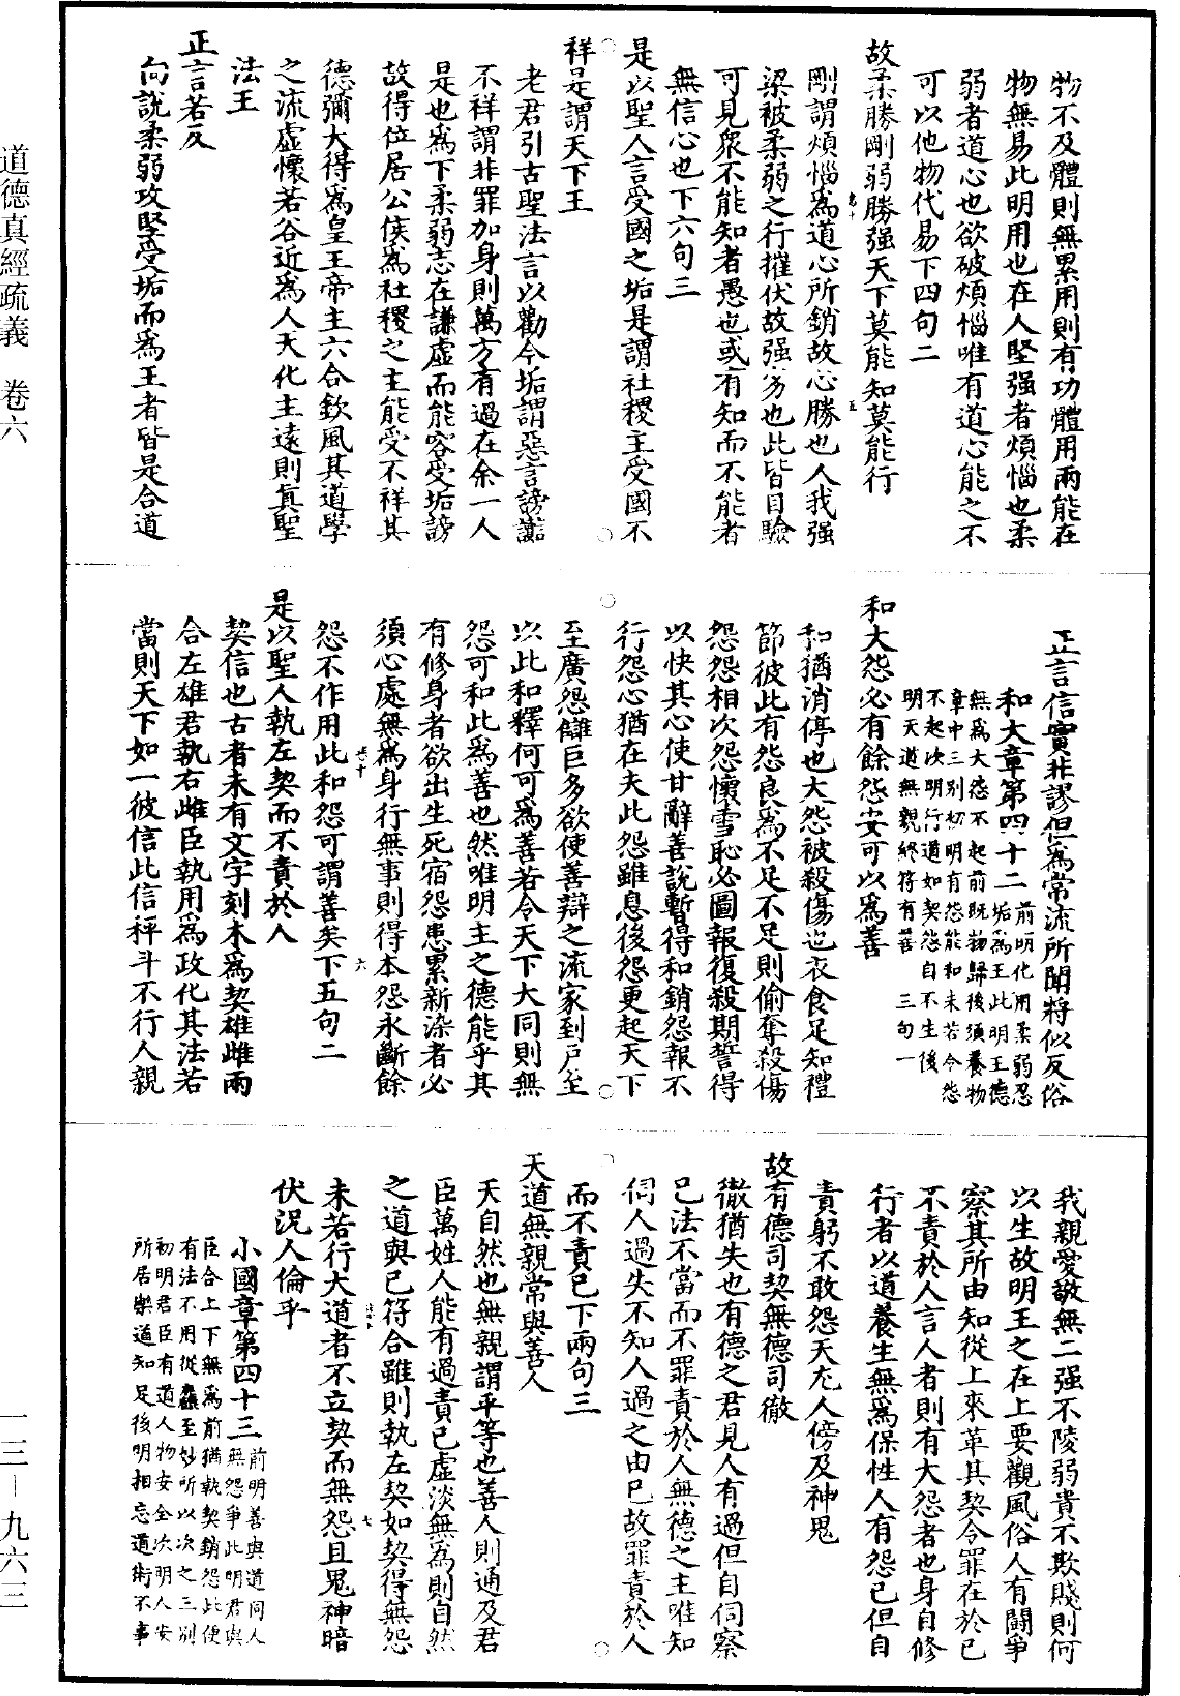 物不及體則無累用則有功體用兩能在
物無易此明用也在人堅强者煩惱也柔
弱者道心也欲破煩惱唯有道心能之不
可以他物代易下四句二
故柔勝剛弱勝强天下莫能知莫能行
剛謂煩惱爲道心所銷故心勝也人我强
梁被柔弱之行摧伏故强劣也此皆目驗
可見衆不能知者愚也或有知而不能者
無信心也下六句三
是以聖人言受國之垢是謂社稷主受國不
祥是謂天下王
老君引古聖法言以勸今垢謂惡言謗讟
不祥謂非罪加身則萬方有過在余一人
是也爲下柔弱志在謙虛而能容受垢謗
故得位居公侯爲社稷之主能受不祥其
德彌大得爲皇王帝主六合欽風其道學
之流虛懷若谷近爲人天化主遠則眞聖
法王
正言若反
向說柔弱攻堅受垢而爲王者皆是合道
正言信實非謬但爲常流所聞將似反俗
和大章第四十二
前明化用柔弱忍
垢爲王此明王德
無爲大怨不起前既物歸後須養物
章中三别初明有怨能和未若令怨
不起次明行道如契怨自不生後
明天道無親終符有善 三句一
和大怨必有餘怨安可以爲善
和猶消停也大怨被殺傷也衣食足知禮
節彼此有怨良爲不足不足則偷奪殺傷
怨怨相次怨懷雪恥必圖報復殺期誓得
以快其心使甘辭善說暫得和銷怨報不
行怨心猶在夫此怨雖息後怨更起天下
至廣怨讎巨多欲使善辯之流家到户至
以此和釋何可爲善若令天下大同則無
怨可和此爲善也然唯明主之德能乎其
有修身者欲出生死宿怨患累新染者必
須心處無爲身行無事則得本怨永斷餘
怨不作用此和怨可謂善矣下五句二
是以聖人執左契而不責於人
契信也古者未有文字刻木爲契雄雌兩
合左雄君執右雌臣執用爲政化其法若
當則天下如一彼信此信秤斗不行人親
我親愛敬無二强不陵弱貴不欺賤則何
以生故明王之在上要觀風俗人有鬭爭
察其所由知從上來革其契令罪在於己
不責於人言人者則有大怨者也身自修
行者以道養生無爲保性人有怨己但自
責躬不敢怨天尤人傍及神鬼
故有德司契無德司徹
徹猶失也有德之君見人有過但自伺察
己法不當而不罪責於人無德之主唯知
伺人過失不知人過之由己故罪責於人
而不責己下兩句三
天道無親常與善人
天自然也無親謂平等也善人則通及君
臣萬姓人能有過責己虛淡無爲則自然
之道與己符合雖則執左契如契得無怨
未若行大道者不立契而無怨且鬼神暗
伏況人倫乎
小國章第四十三
前明善與道同人
無怨爭此明君與
臣合上下無爲前猶執契銷怨此便
有法不用從麤至妙所以次之三别
初明君臣有道人物安全次明人安
所居樂道知足後明相忘道術不事
道德真經疏義 卷六
一三－九六三